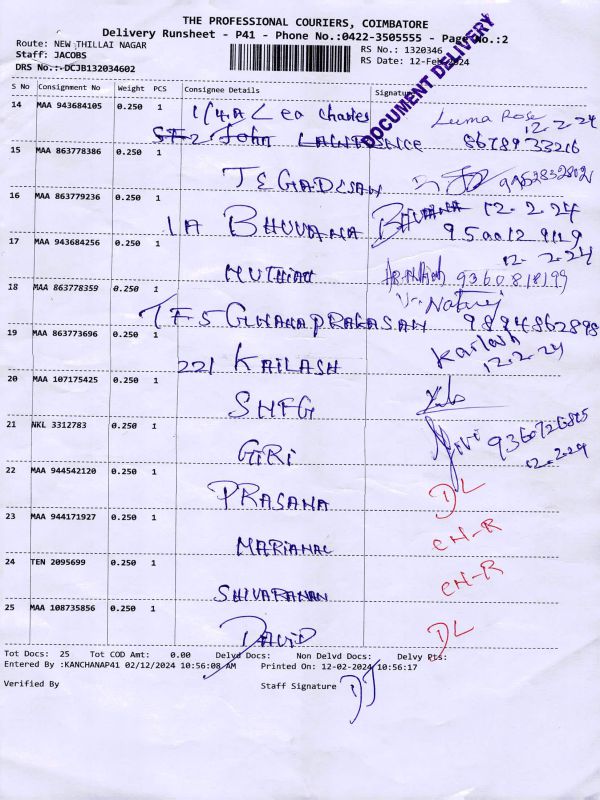 THE PROFESSIONAL COURIERS, COIMBATORE
Delivery Runsheet - P41 - Phone No.:0422-3505555 - Page No.:2
Route: NEW THILLAI NAGAR
Staff: JACOBS
DRS No.:-DCJB132034602
RS No.: 1320346
RS Date: 12-Feb-2024
DOCUMENT DELIVERY
S No Consignment No Weight PCS Consignee Details Signature
14 MAA 943684105 0.250 1 1/4A Leo Charles
12.2.24
SF2 John LAWRENCE 8678933216
15 MAA 863778386 0.250 1
16 MAA 863779236 0.250 1 1A BHUVANA BHUVANA 12.2.24
17 MAA 943684256 0.250 1 MUTHIAH
12.2.24
18 MAA 863778359 0.250 1 TF5 GNANAPRAKASAM 9894862898
19 MAA 863773696 0.250 1 221 KAILASH Kailash
12.2.24
20 MAA 107175425 0.250 1 SHFG
21 NKL 3312783 0.250 1 GIRI
12.2.24
22 MAA 944542120 0.250 1 PRASANA DL
23 MAA 944171927 0.250 1 MARIANAL CH-R
24 TEN 2095699 0.250 1 SHIVARAMAN CH-R
25 MAA 108735856 0.250 1 DAVID DL
Tot Docs: 25 Tot COD Amt: 0.00 Delvd Docs: Non Delvd Docs: Delvy Pts:
Entered By :KANCHANAP41 02/12/2024 10:56:08 AM Printed On: 12-02-2024 10:56:17
Verified By Staff Signature DJ